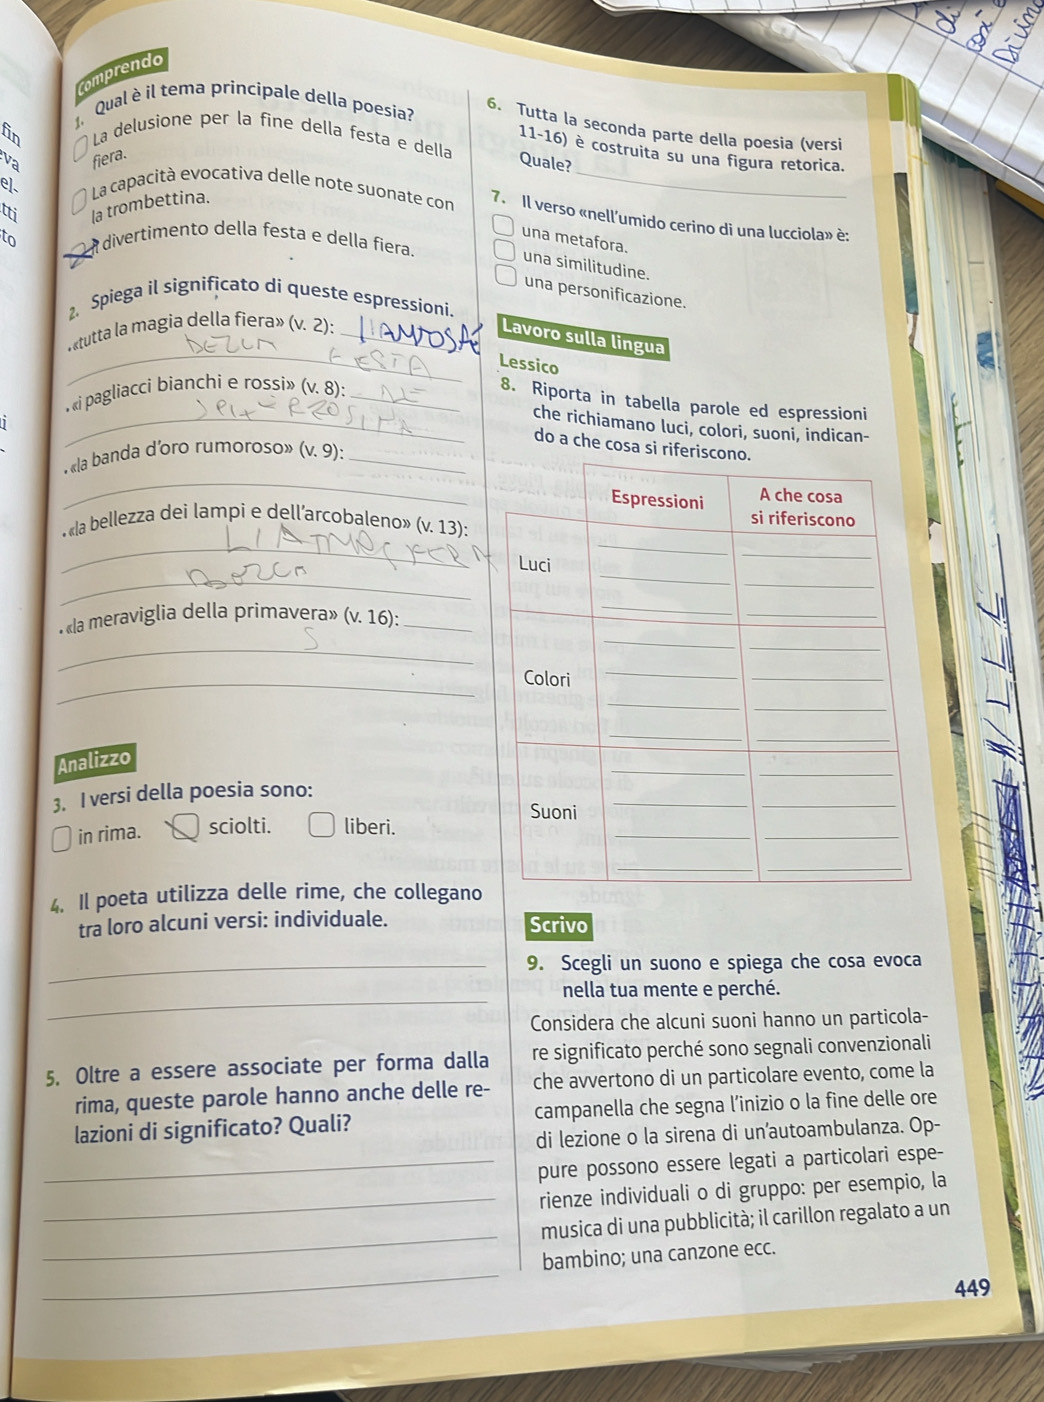 Comprendo
1. Qual è il tema principale della poesia?
La delusione per la fine della festa e della
fiera.
La capacità evocativa delle note suonate con
la trombettina.
divertimento della festa e della fiera.
2. Spiega il significato di queste espressioni.
• «tutta la magia della fiera» (v. 2):
FESTA
• «i pagliacci bianchi e rossi» (v. 8):
• «la banda d'oro rumoroso» (v. 9):
• «la bellezza dei lampi e dell'arcobaleno» (v. 13):
• «la meraviglia della primavera» (v. 16):
Analizzo
3. I versi della poesia sono:
in rima. sciolti. liberi.
4. Il poeta utilizza delle rime, che collegano
tra loro alcuni versi: individuale.
5. Oltre a essere associate per forma dalla
rima, queste parole hanno anche delle re-
lazioni di significato? Quali?
6. Tutta la seconda parte della poesia (versi
11-16) è costruita su una figura retorica.
Quale?
7. Il verso «nell'umido cerino di una lucciola» è:
una metafora.
una similitudine.
una personificazione.
Lavoro sulla lingua
Lessico
8. Riporta in tabella parole ed espressioni
che richiamano luci, colori, suoni, indican-
do a che cosa si riferiscono.
Espressioni A che cosa
si riferiscono
Luci
Colori
Suoni
Scrivo
9. Scegli un suono e spiega che cosa evoca
nella tua mente e perché.
Considera che alcuni suoni hanno un particola-
re significato perché sono segnali convenzionali
che avvertono di un particolare evento, come la
campanella che segna l'inizio o la fine delle ore
di lezione o la sirena di un'autoambulanza. Op-
pure possono essere legati a particolari espe-
rienze individuali o di gruppo: per esempio, la
musica di una pubblicità; il carillon regalato a un
bambino; una canzone ecc.
449